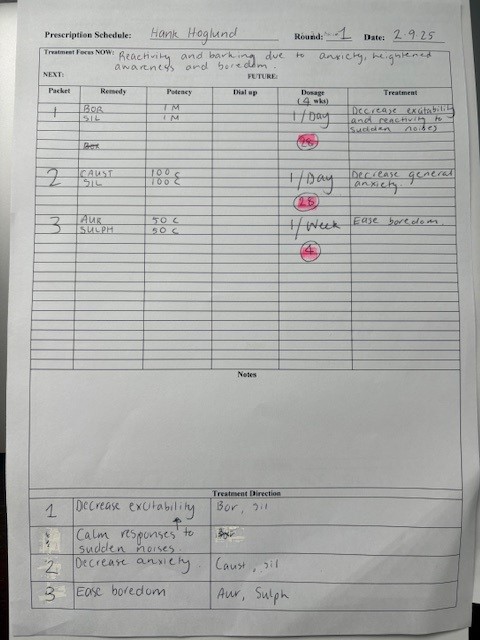 Prescription Schedule: Hank Hoglund Round: 1 Date: 2.9.25
Treatment Focus NOW: Reactivity and barking due to anxiety, heightened
awareness and boredom.
NEXT: FUTURE:
Packet Remedy Potency Dial up Dosage Treatment
(4 wks)
1 BOR 1M 1/Day Decrease excitability
SIL 1M and reactivity to
sudden noises
Bor 28
2 CAUST 100c 1/Day Decrease general
SIL 100c anxiety.
28
3 AUR 50c 1/Week Ease boredom.
SULPH 50c
4
Notes
Treatment Direction
1 Decrease excitability Bor, sil
Calm responses to
sudden noises.
2 Decrease anxiety Caust, sil
3 Ease boredom Aur, Sulph